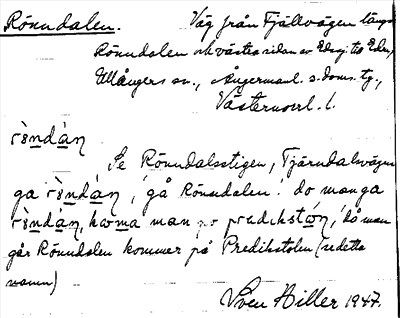 Rönndalen. Väg från Fjällvägen längs
Rönndalen och västra sidan av Edsg. till Eden,
Ullångers sn., Ångermanl. s. doms. tg.,
Västernorrl. l.
Se Rönndalsstigen, Tjärndalsvägen
ga 'gå Rönndalen'. do man ga
man po 'då man
går Rönndalen kommer på Predikstolen' (se detta
namn)
Sven Hiller 1947.